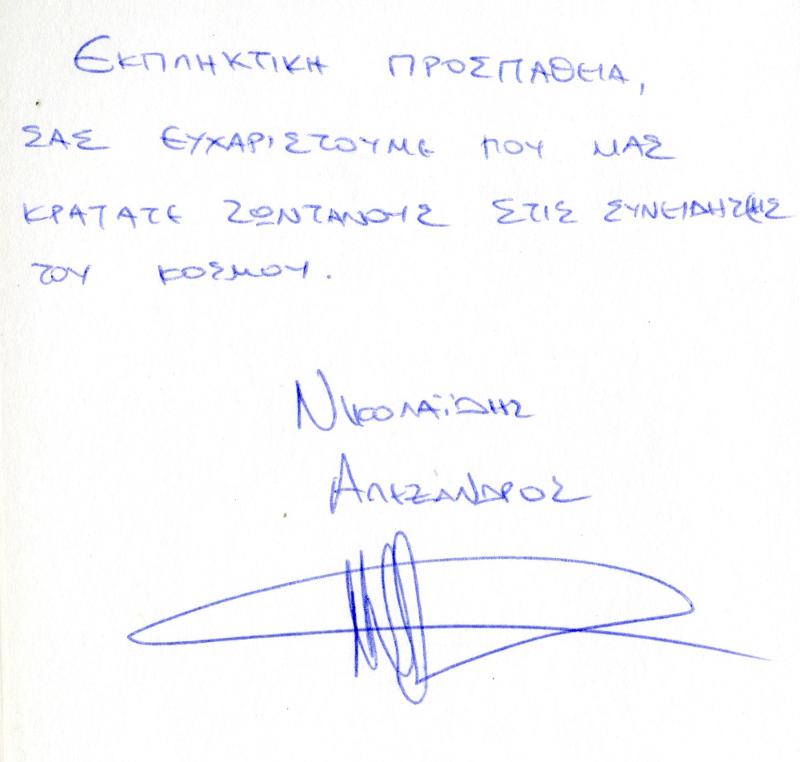 ΕΚΠΛΗΚΤΙΚΗ ΠΡΟΣΠΑΘΕΙΑ,
ΣΑΣ ΕΥΧΑΡΙΣΤΟΥΜΕ ΠΟΥ ΜΑΣ
ΚΡΑΤΑΤΕ ΖΩΝΤΑΝΟΥΣ ΣΤΙΣ ΣΥΝΕΙΔΗΣΕΙΣ
ΤΟΥ ΚΟΣΜΟΥ.
ΝΙΚΟΛΑΪΔΗΣ
ΑΛΕΞΑΝΔΡΟΣ